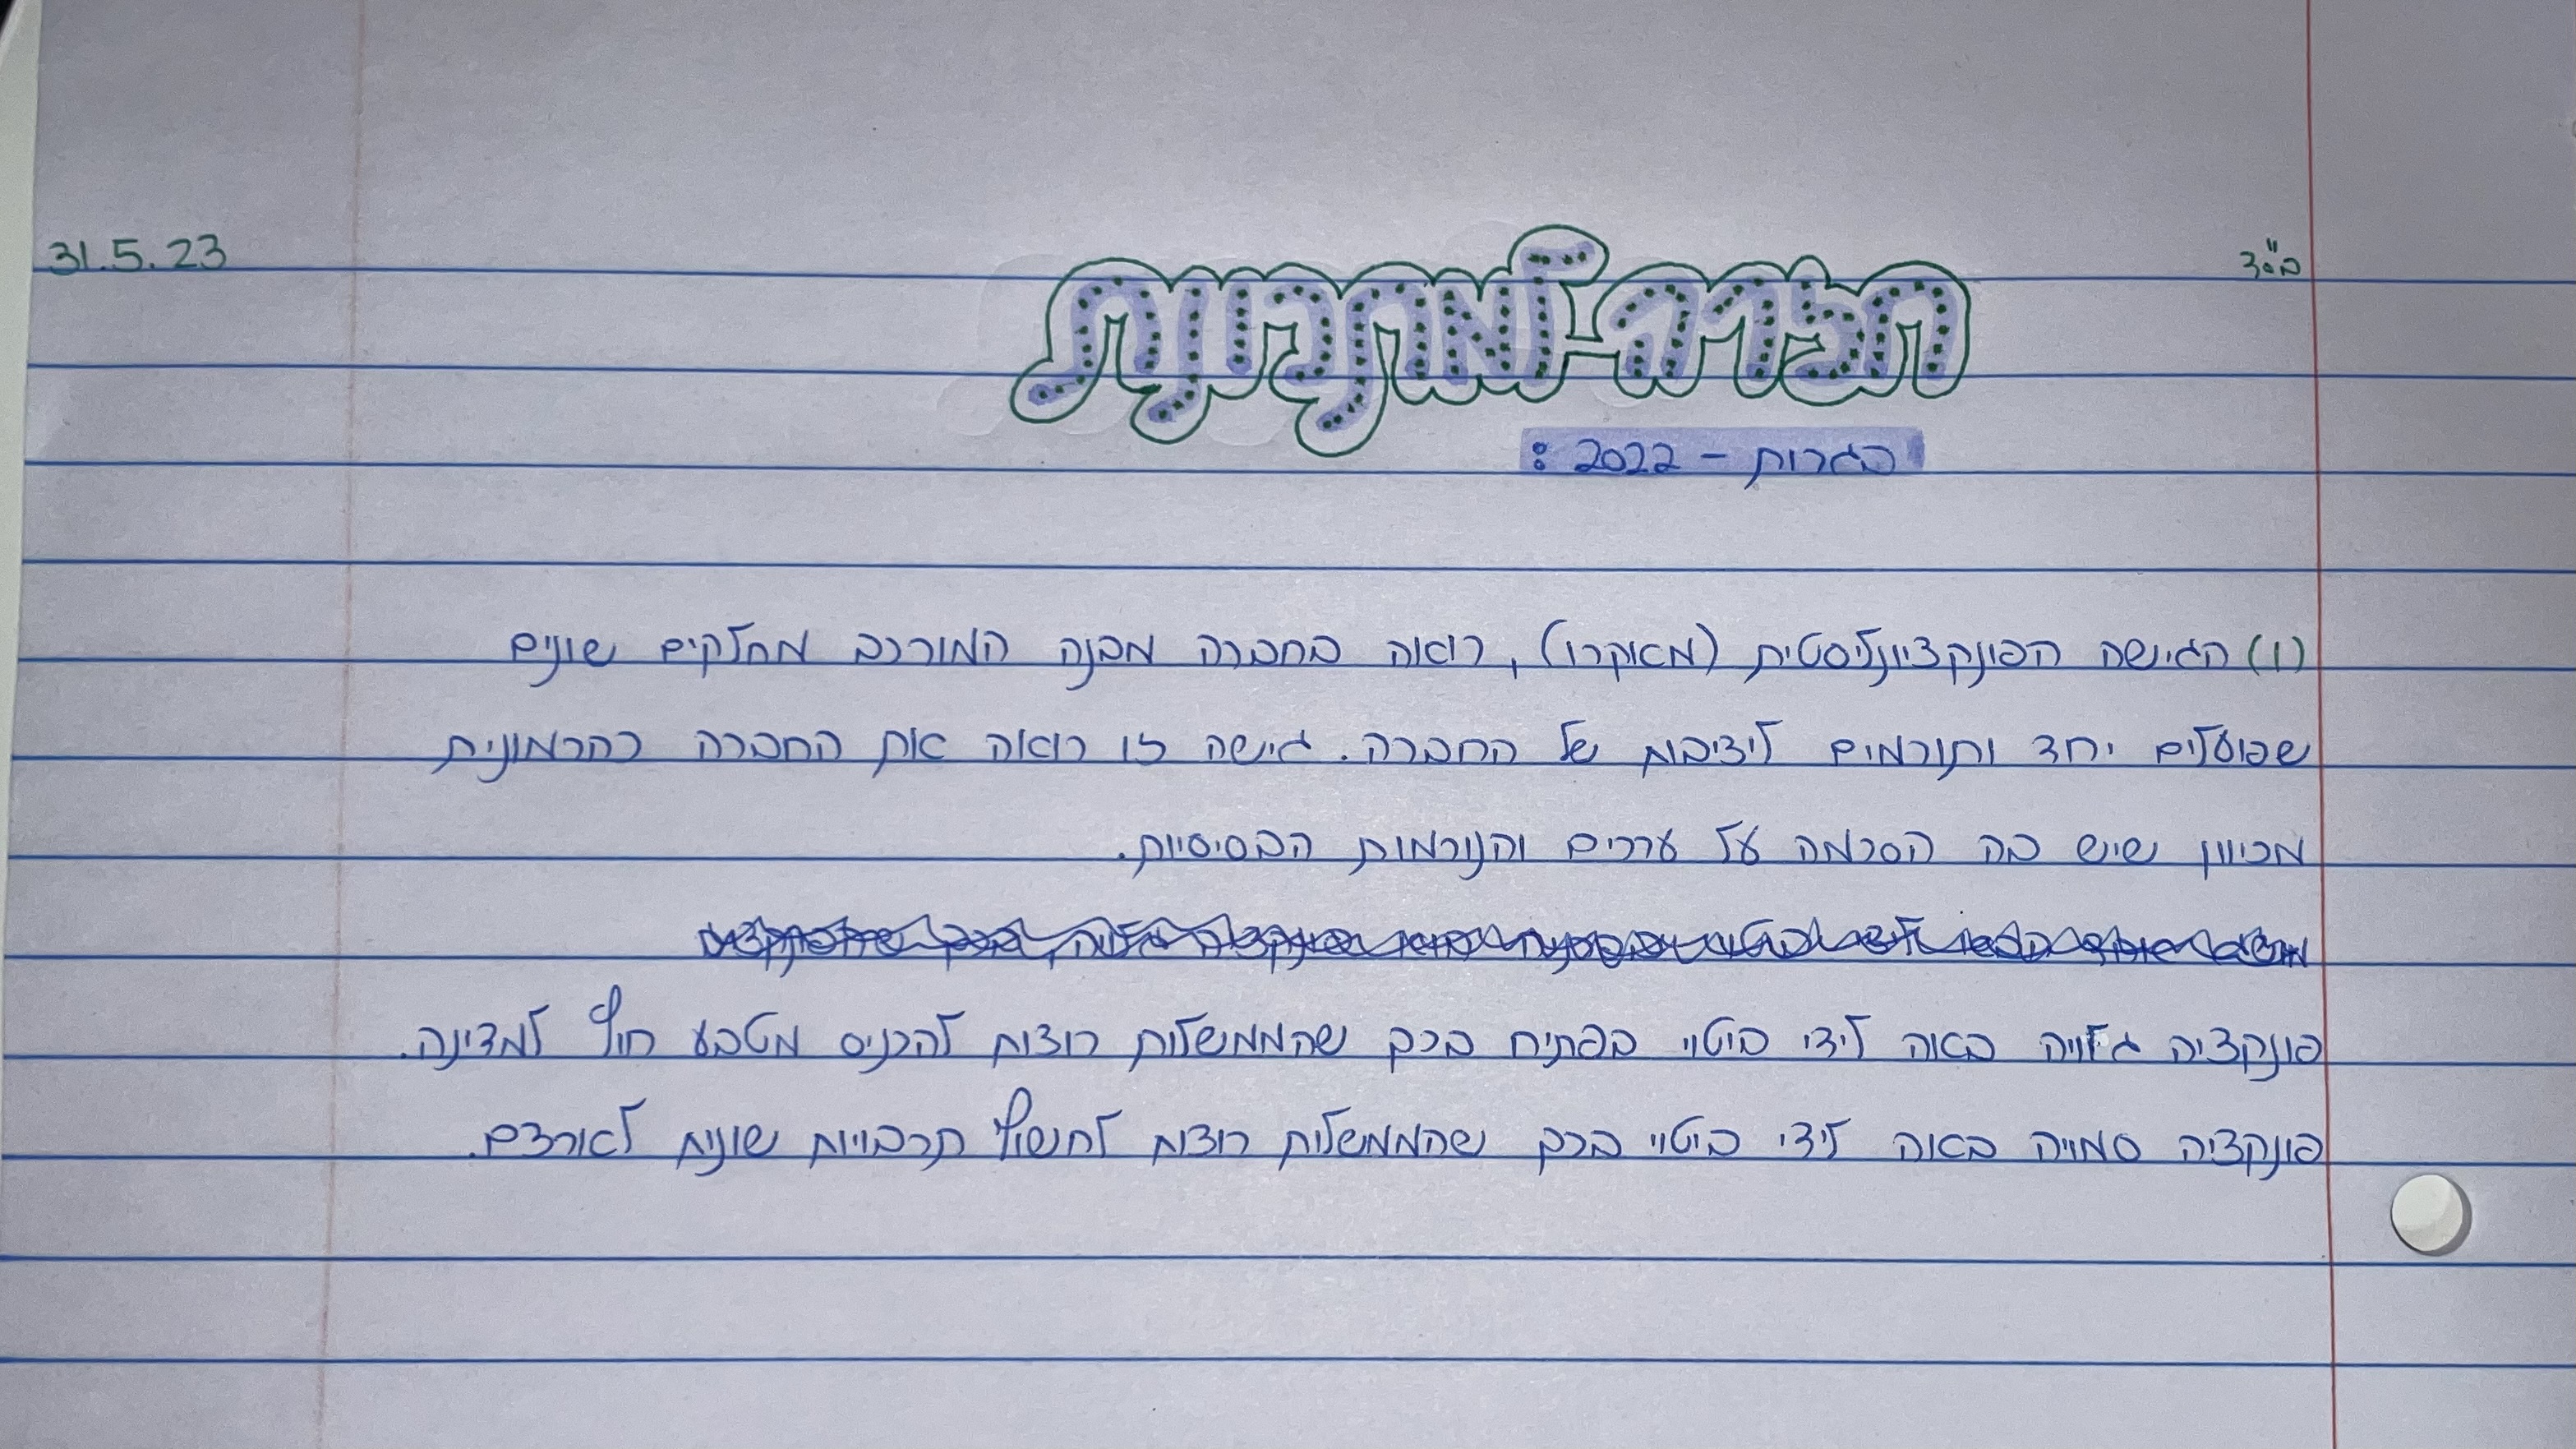 בס"ד
31.5.23
חזרה-למתכונת
בגרות - 2022 :
(1) הגישה הפונקציונליסטית (מאוקרו), רואה בחברה מבנה המורכב מחלקים שונים
שפועלים יחד ותורמים ליציבות של החברה. גישה זו רואה את החברה כהרמונית
מכיוון שיש בה הסכמה על ערכים והנורמות הבסיסיות.
פונקציה גלויה באה לידי ביטוי בפתיח בכך שהממשלות רוצות להכניס מטבע חוץ למדינה.
פונקציה סמויה באה לידי ביטוי בכך שהממשלות רוצות לחשוף תרבויות שונות לאורצם.